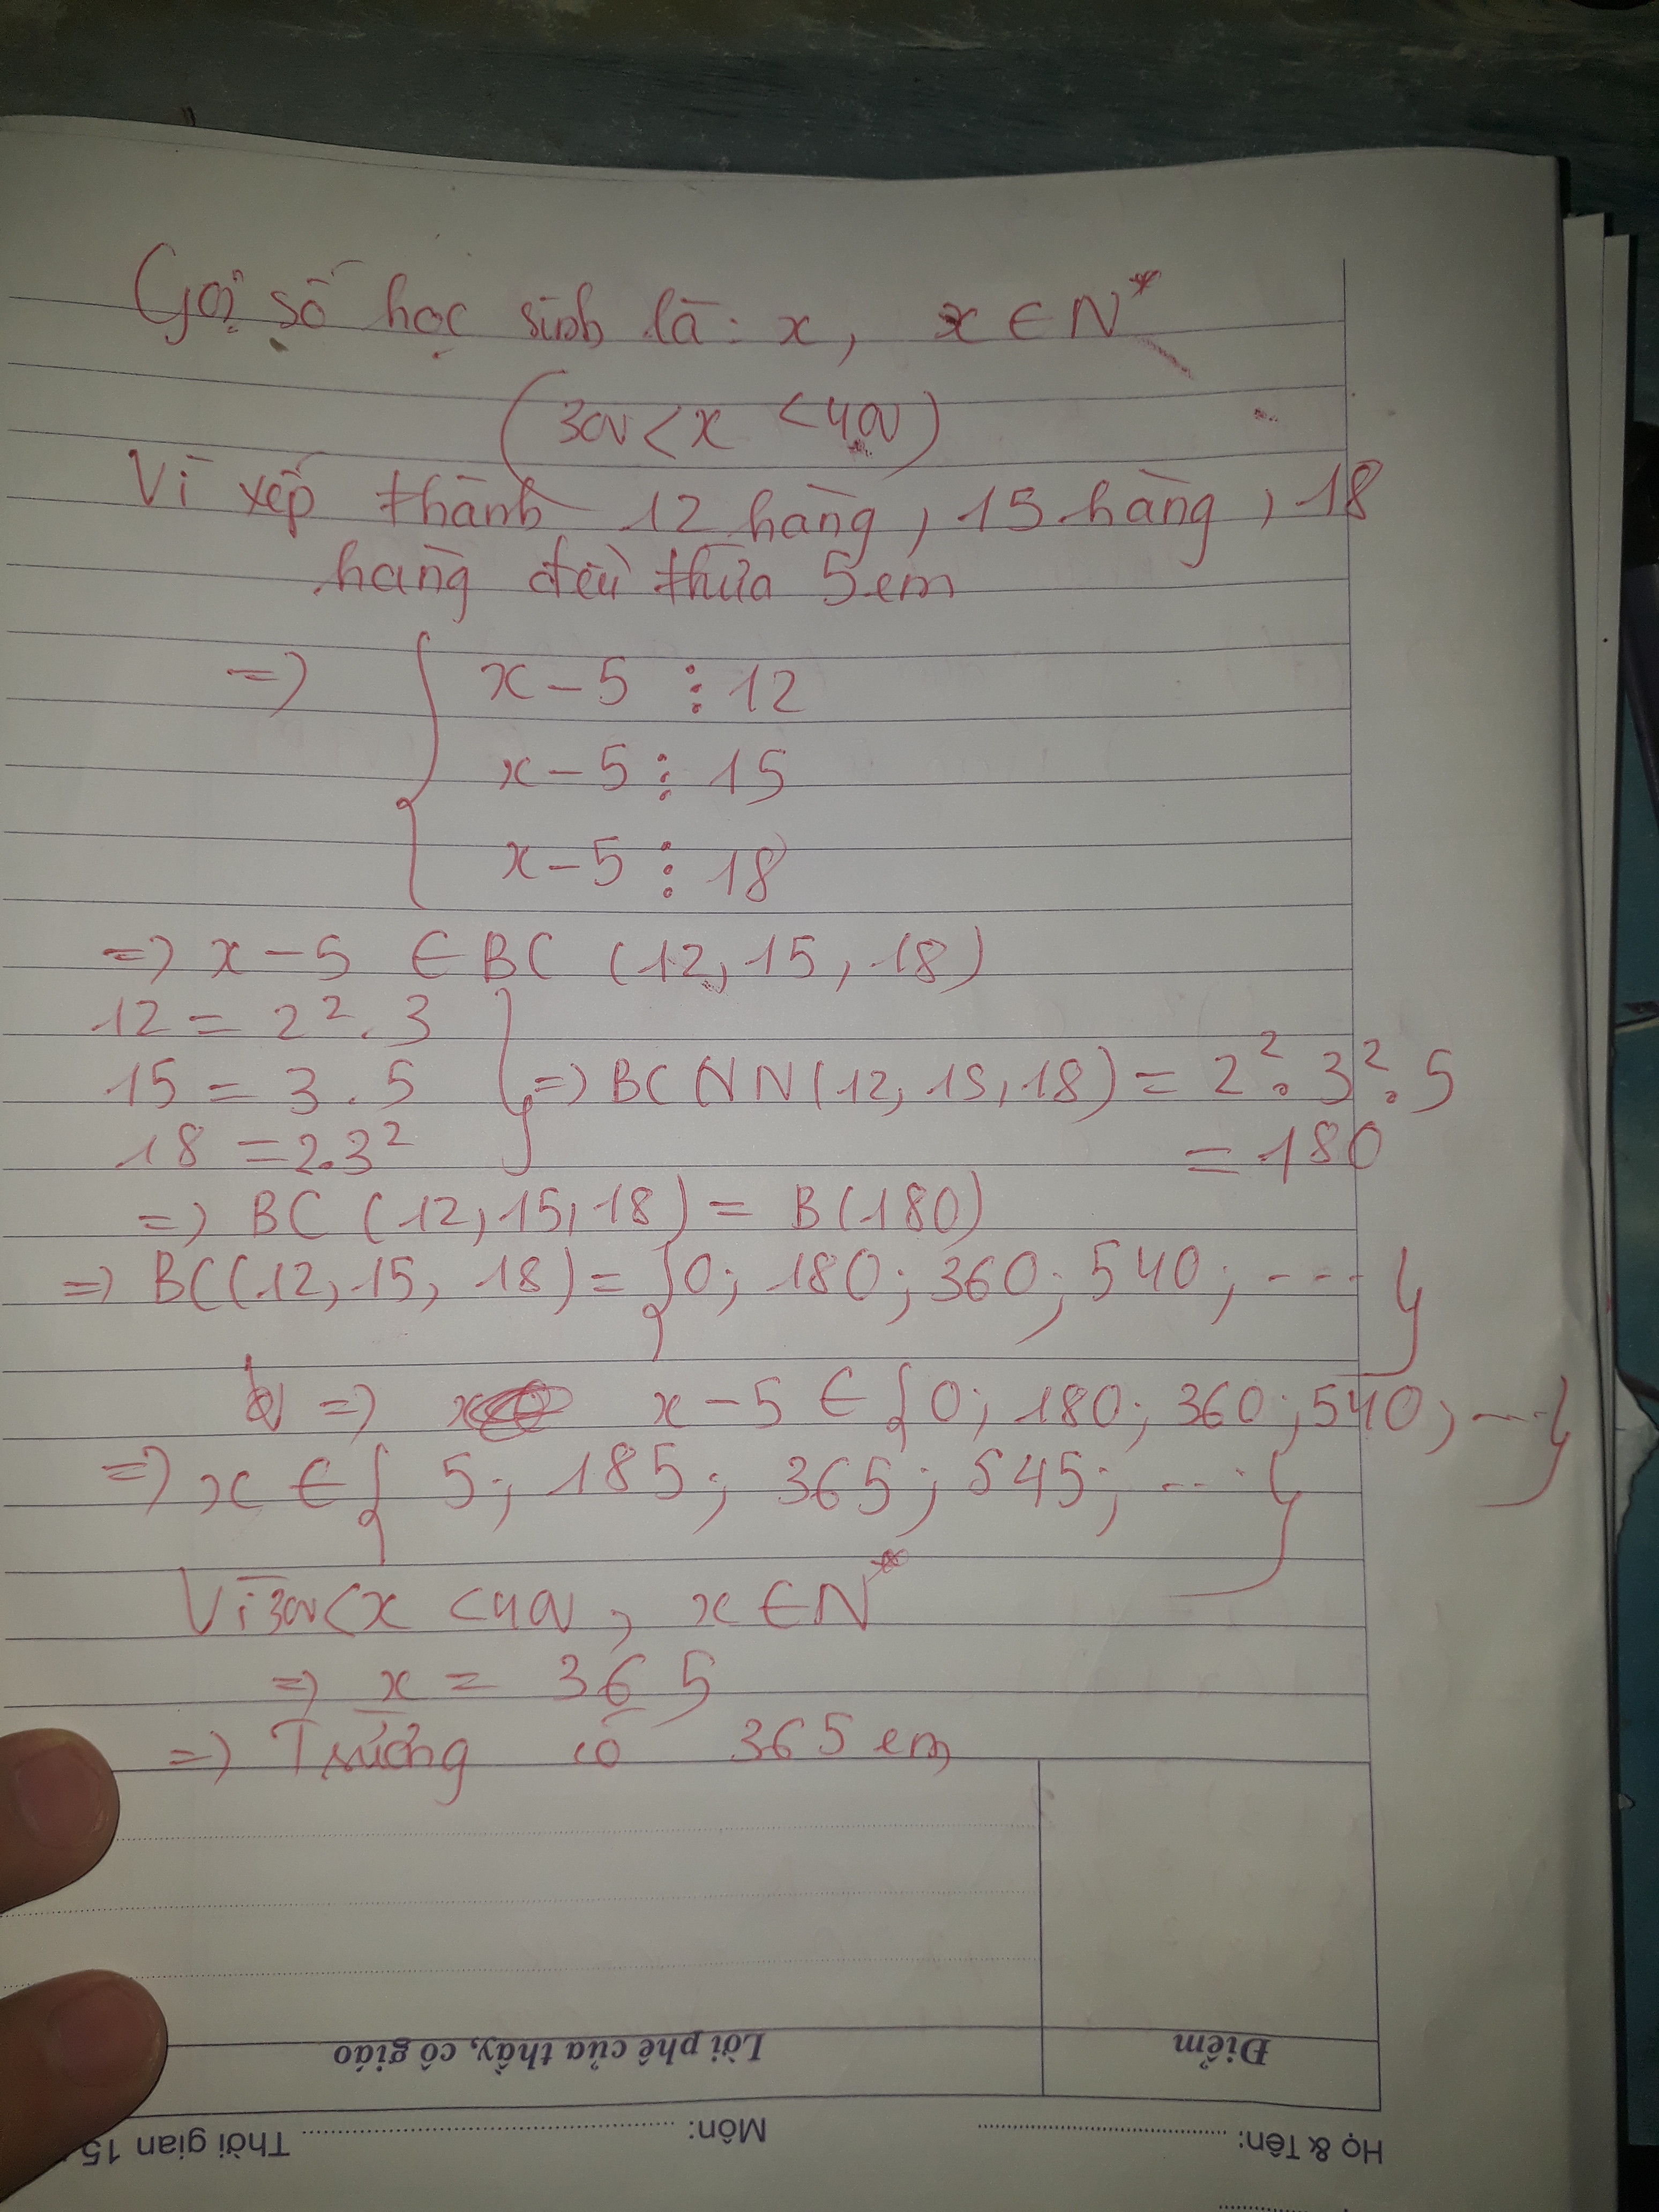 Gọi số học sinh là: x, x ∈ N*
(300 < x < 400)
Vì xếp thành 12 hàng, 15 hàng, 18
hàng đều thừa 5 em
=> { x - 5 ⋮ 12
x - 5 ⋮ 15
x - 5 ⋮ 18
=> x - 5 ∈ BC (12, 15, 18)
12 = 2². 3
15 = 3 . 5 } => BCNN(12, 15, 18) = 2². 3². 5
18 = 2.3² = 180
=> BC (12, 15, 18) = B(180)
=> BC(12, 15, 18) = {0; 180; 360; 540; ...}
=> x - 5 ∈ {0; 180; 360; 540; ...}
=> x ∈ { 5; 185; 365; 545; ... }
Vì 300 < x < 400, x ∈ N*
=> x = 365
=> Trường có 365 em
Lời phê của thầy, cô giáo Điểm
Thời gian 15 Môn: Họ & Tên: